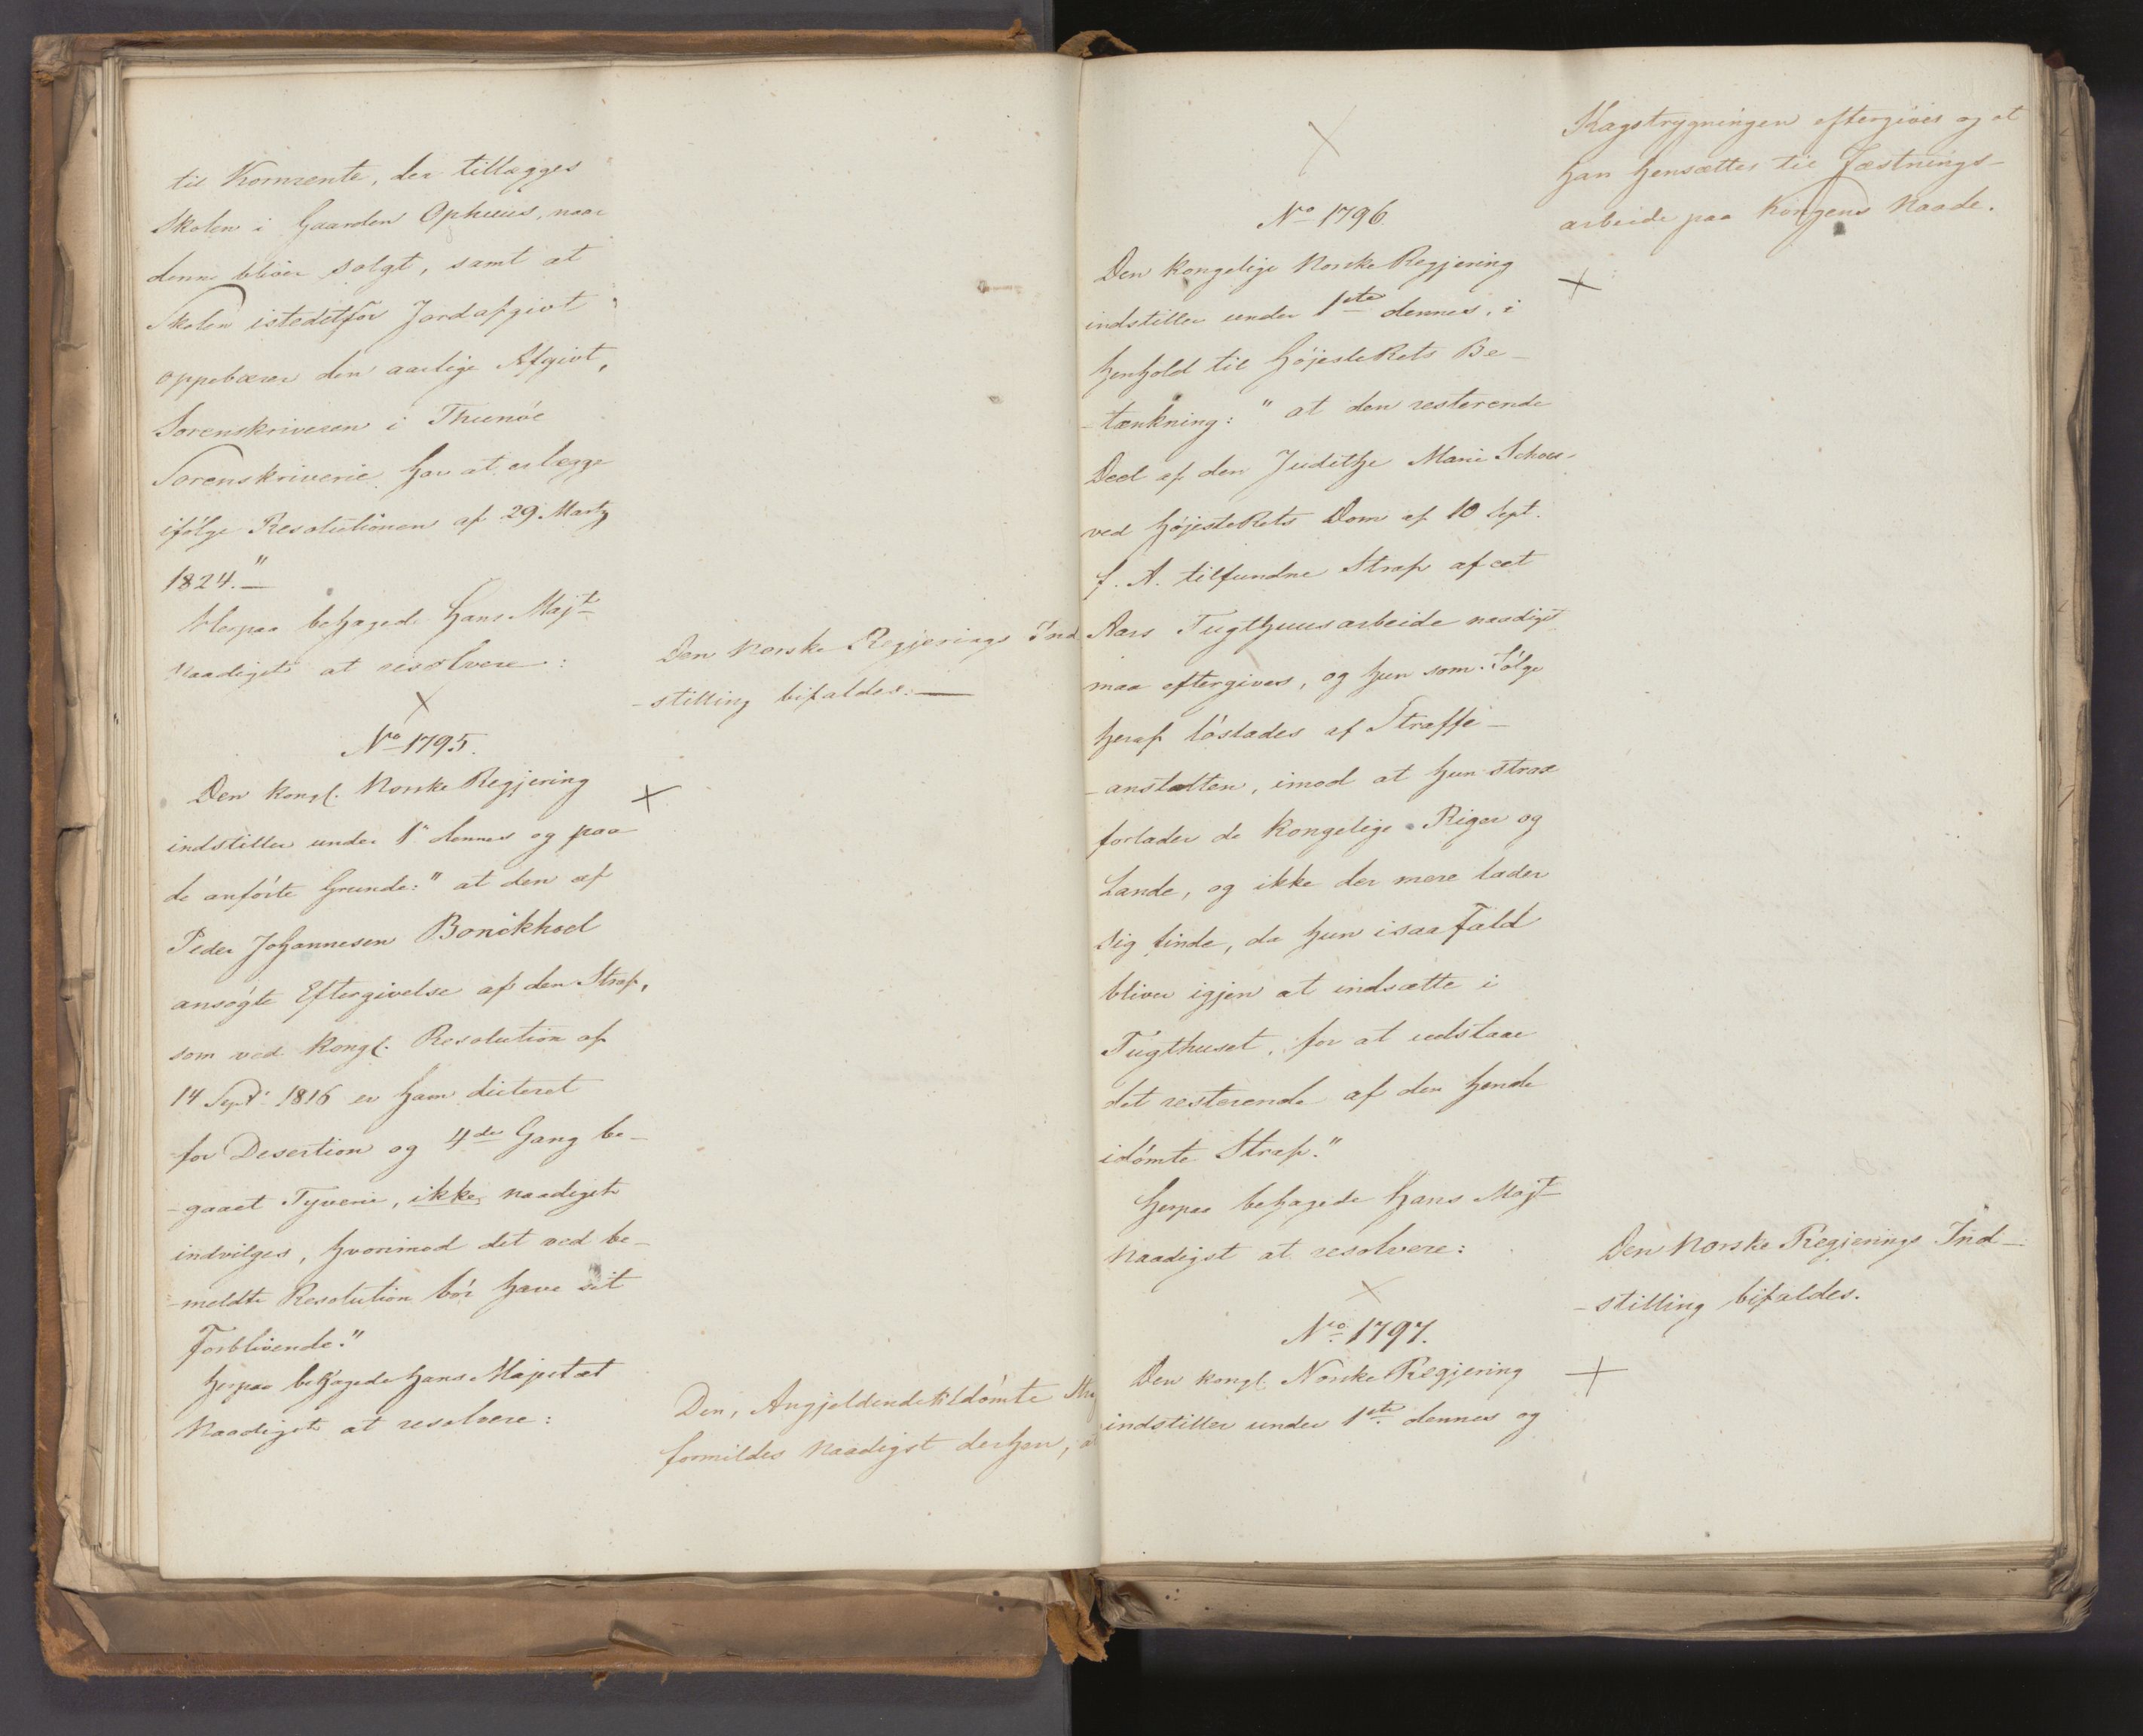 til Kornrente, der tillægges
Skolen i Gaarden Ophuus, naar
denne bliver solgt, samt at
Skolen istedetfor Jordafgivt
oppebærer den aarlige Afgivt,
Sorenskriveren i Thunöe
Sorenskriverie har at erlægge
ifölge Resolutionen af 29 Martz
1824."—
Herpaa behagede Hans Majt
Naadigst at resolvere:
Den Norske Regjerings Ind
-stilling bifaldes.—
No 1795.
Den Kongl. Norske Regjering
indstiller under 1" dennes og paa
de anförte Grunde: "at den af
Peder Johannesen Bonökhod
ansögte Eftergivelse af den Straf,
som ved Kongl. Resolution af
14 Sept. 1816 er ham dicteret
for Desertion og 4de Gang be-
-gaaet Tyverie, ikke naadigst
indvilges, hvorimod det ved be-
-meldte Resolution bör have sit
Forblivende."
Herpaa behagede Hans Majestæt
Naadigst at resolvere:
Den, Angjeldende tildömte
formildes Naadigst derhen,
Kagstrygningen eftergives og at
han hensættes til Fæstnings-
arbeide paa Kongens Naade.
No 1796.
Den Kongelige Norske Regjering
indstiller under 1ste dennes, i
Henhold til HöjesteRets Be-
-tænkning: "at den resterende
Deel af den Judithe Marie Schou
ved HöjesteRets Dom af 10 Sept.
f. A. tilfundne Straf af eet
Aars Tugthuusarbeide naadigst
maa eftergives, og hun som Fölge
heraf löslades af Straffe-
-anstalten, imod at hun strax
forlader de Kongelige Riger og
Lande, og ikke der mere lader
sig finde, da hun isaafald
bliver igjen at indsætte i
Tugthuset, for at udstaae
det resterende af den hende
idömte Straf."
Herpaa behagede Hans Majt
Naadigst at resolvere:
Den Norske Regjerings Ind-
-stilling bifaldes.
No 1797.
Den Kongl. Norske Regjering
indstiller under 1ste dennes og